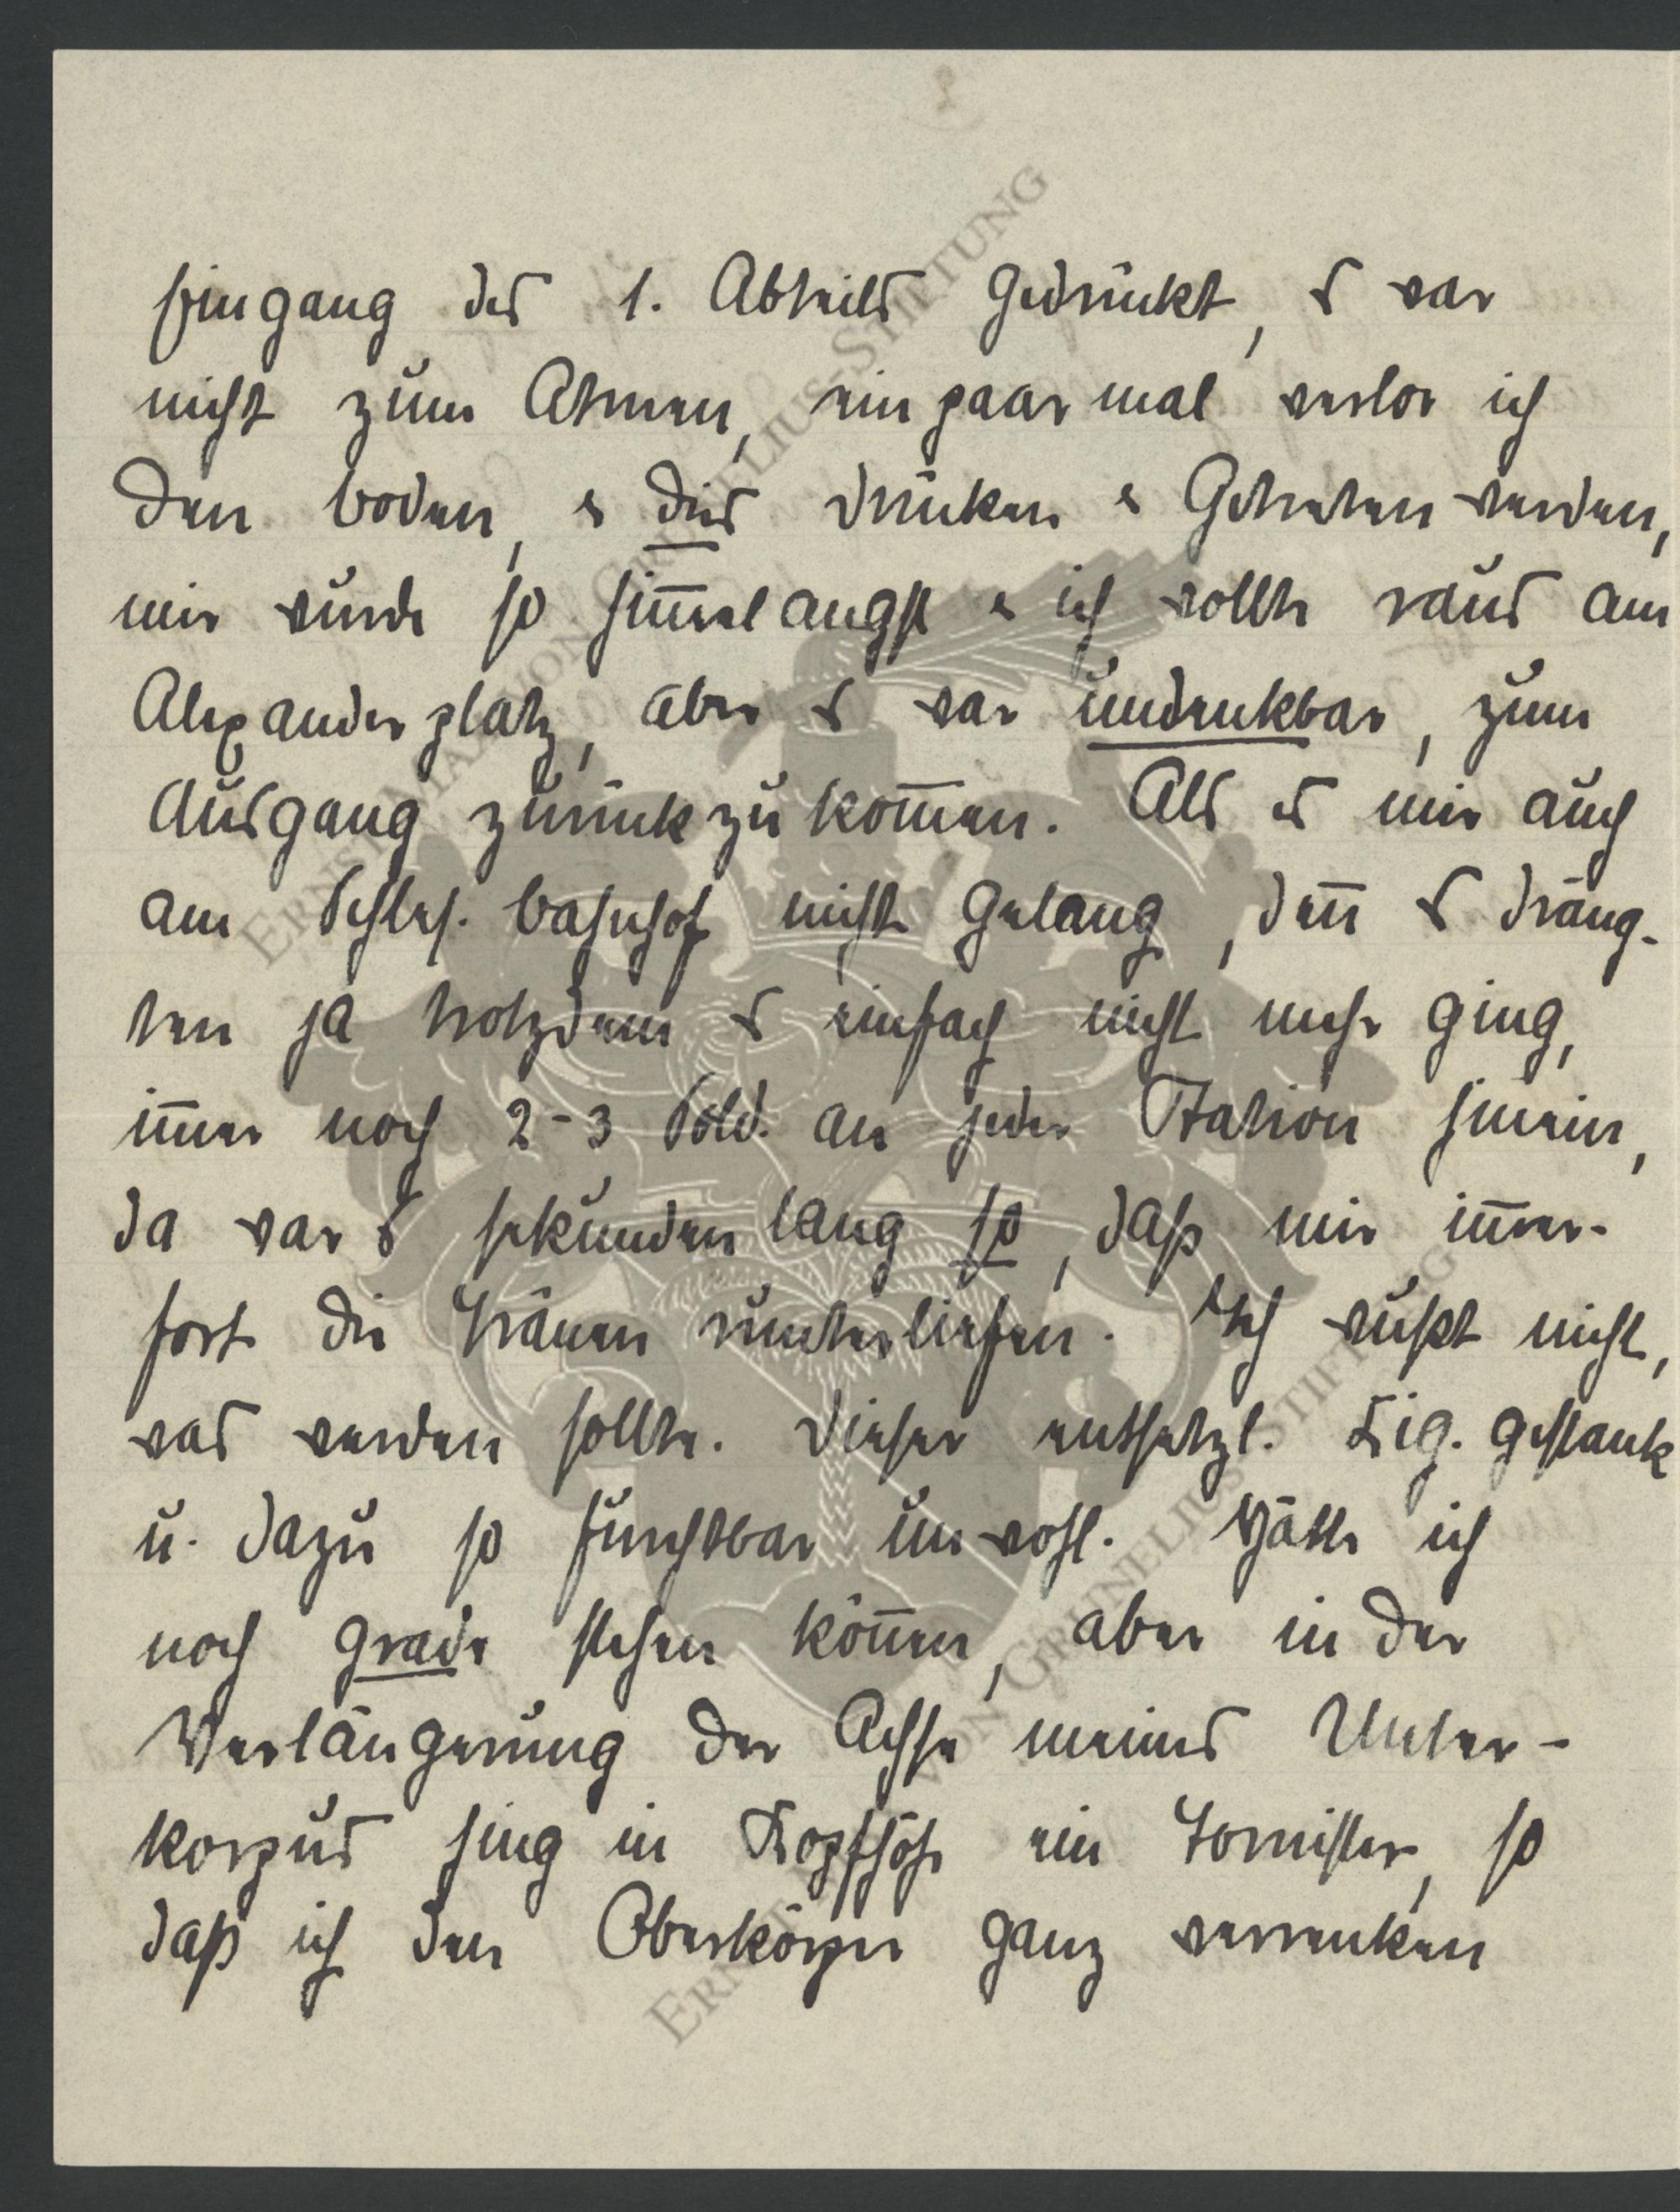 Eingang des 1. Abteils gedrückt, es war
nicht zum Atmen, ein paar mal verlor ich
den Boden, & dies Drücken & Getreten werden,
mir wurde so him̄elangst & ich wollte raus am
Alexanderplatz, aber es war undenkbar, zum
Ausgang zurückzukom̄en. Als es mir auch
am Schles. Bahnhof nicht gelang, den̄ es dräng-
ten ja trotzdem es einfach nicht mehr ging,
im̄er noch 2-3 Sold. an jeder Station hinein,
da war es sekundenlang so, daß mir im̄er-
fort die Tränen runterliefen. Ich wußt nicht,
was werden sollte. Dieser entsetzl. Zig. gestank
u. dazu so furchtbar unwohl. Hätte ich
noch grade stehen kön̄en, aber in der
Verlängerung der Achse meines Unter-
korpus hing in Kopfhöhe ein Tornister, so
daß ich den Oberkörper ganz verrenken
ERNST MAX VON GRUNELIUS-STIFTUNG
ERNST VON GRUNELIUS-STIFTUNG